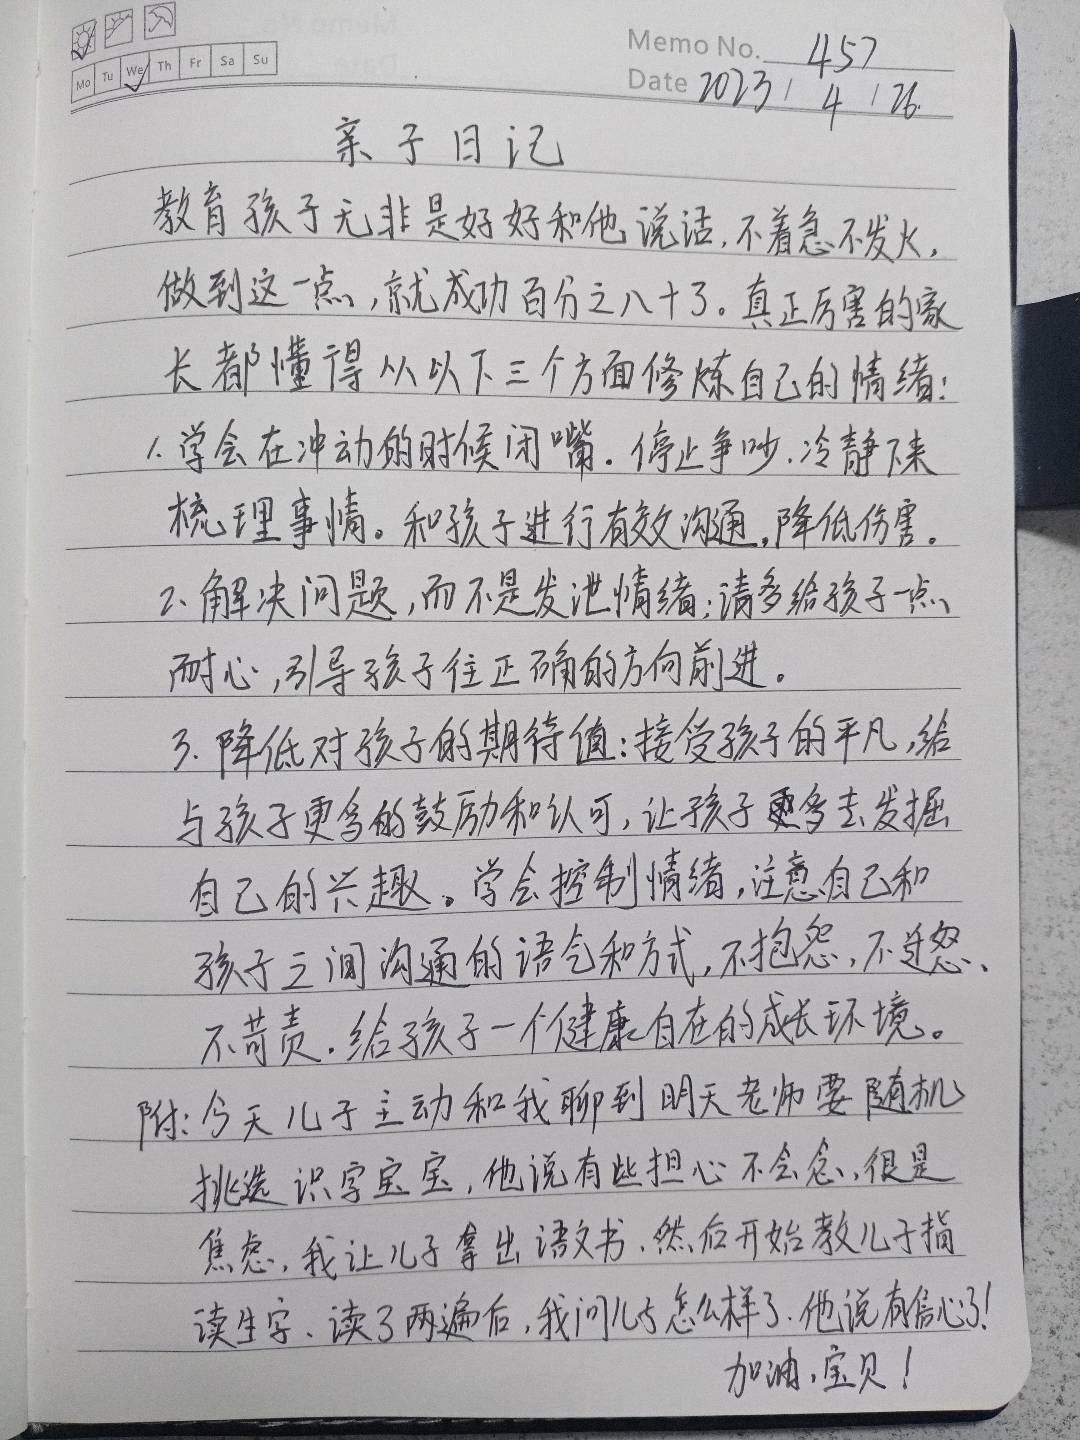 Memo No. 457
Mo Tu We Th Fr Sa Su
Date 2023 / 4 / 26.
亲子日记
教育孩子无非是好好和他说话,不着急不发火,
做到这一点,就成功百分之八十了。真正厉害的家
长都懂得从以下三个方面修炼自己的情绪:
1.学会在冲动的时候闭嘴。停止争吵.冷静下来
梳理事情。和孩子进行有效沟通,降低伤害。
2、解决问题,而不是发泄情绪;请多给孩子一点
耐心,引导孩子往正确的方向前进。
3.降低对孩子的期待值:接受孩子的平凡,给
与孩子更多的鼓励和认可,让孩子更多去发掘
自己的兴趣。学会控制情绪,注意自己和
孩子之间沟通的语气和方式,不抱怨,不迁怒、
不苛责.给孩子一个健康自在的成长环境。
附:今天儿子主动和我聊到明天老师要随机
挑选识字宝宝,他说有些担心不会念,很是
焦虑,我让儿子拿出语文书.然后开始教儿子指
读生字、读了两遍后,我问儿子怎么样了.他说有信心了!
加油,宝贝!